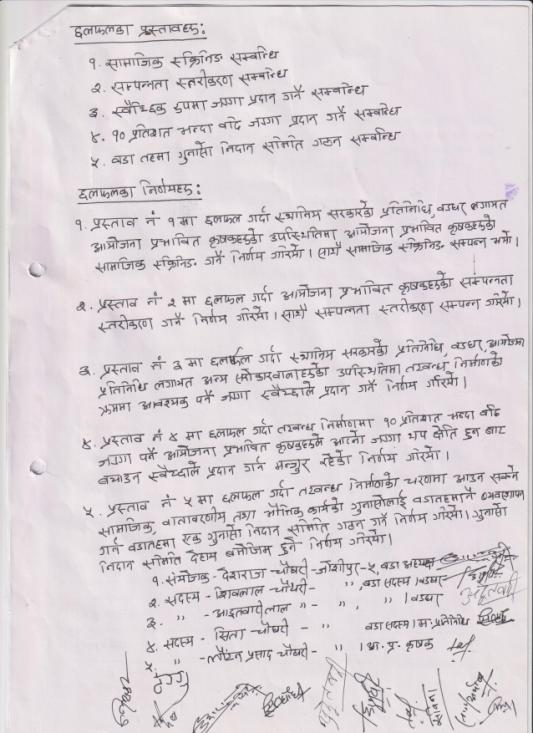 छलफलका प्रस्तावहरू:
१. सामाजिक स्क्रिनिङ सम्बन्धि
२. सम्पन्नता स्तरीकरण सम्बन्धि
३. स्वैच्छिक रुपमा जग्गा प्रदान गर्ने सम्बन्धि
४. १० प्रतिशत भन्दा बढि जग्गा प्रदान गर्ने सम्बन्धि
५. वडा तहमा गुनासो निदान समिति गठन सम्बन्धि
छलफलका निर्णयहरू:
१. प्रस्ताव नं १ मा छलफल गर्दा स्थानिय सरकारका प्रतिनिधि, वडघर लगायत
आयोजना प्रभावित कृषकहरूको उपस्थितिमा आयोजना प्रभावित कृषकहरूको
सामाजिक स्क्रिनिङ गर्ने निर्णय गरियो। साथै सामाजिक स्क्रिनिङ सम्पन्न भयो।
२. प्रस्ताव नं २ मा छलफल गर्दा आयोजना प्रभावित कृषकहरूको सम्पन्नता
स्तरीकरण गर्ने निर्णय गरियो। साथै सम्पन्नता स्तरीकरण सम्पन्न गरियो।
३. प्रस्ताव नं ३ मा छलफल गर्दा स्थानिय सरकारको प्रतिनिधि, वडघर, आयोजना
प्रतिनिधि लगायत अन्य सरोकारवालाहरूको उपस्थितिमा तटबन्ध निर्माणको
क्रममा आवश्यक पर्ने जग्गा स्वैच्छाले प्रदान गर्ने निर्णय गरियो।
४. प्रस्ताव नं ४ मा छलफल गर्दा तटबन्ध निर्माणमा १० प्रतिशत भन्दा बढि
जग्गा पर्ने आयोजना प्रभावित कृषकहरूले आफ्नो जग्गा थप क्षेति हुन बाट
बचाउन स्वैच्छाले प्रदान गर्न मन्जुर रहेको निर्णय गरियो।
५. प्रस्ताव नं ५ मा छलफल गर्दा तटबन्ध निर्माणको चरणमा आउन सक्ने
सामाजिक, वातावरणीय तथा भौतिक कार्यको गुनासोलाई वडातहमानै व्यवस्थापन
गर्न वडातहमा एक गुनासो निदान समिति गठन गर्ने निर्णय गरियो। गुनासो
निदान समिति देहाय बमोजिम हुने निर्णय गरियो।
१. संयोजक - देशराज चौधरी - जोशीपुर-५, वडा अध्यक्ष
२. सदस्य - शिवलाल चौधरी - " ", वडा सदस्य।
३. " - आइतवारीलाल " - " , " ।
४. सदस्य - सिता चौधरी - " " वडा सदस्य। म. प्रतिनिधि
५. " - प्रसाद चौधरी - " " । आ. प्र. कृषक